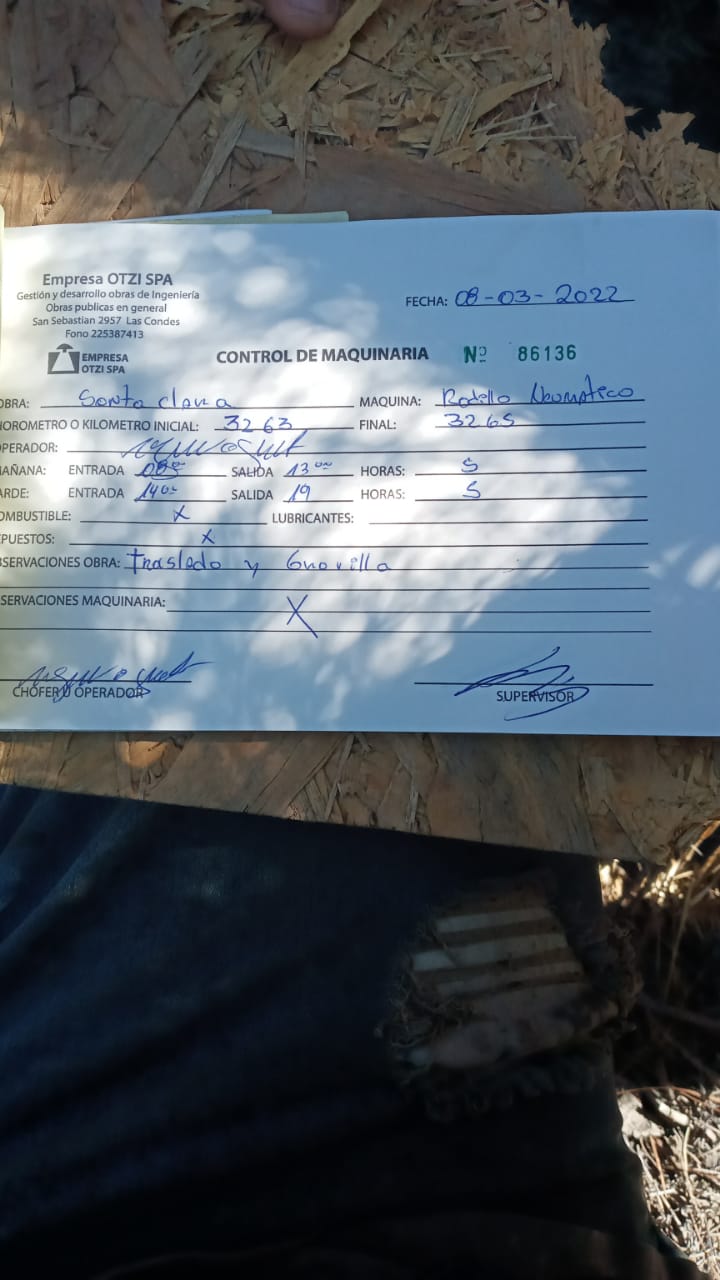 Empresa OTZI SPA
Gestión y desarrollo obras de Ingeniería
Obras publicas en general
San Sebastian 2957 Las Condes
Fono 225387413
EMPRESA
OTZI SPA
FECHA: 08-03-2022
CONTROL DE MAQUINARIA Nº 86136
OBRA: Santa Clara MAQUINA: Rodillo Neumatico
HOROMETRO O KILOMETRO INICIAL: 3263 FINAL: 3265
OPERADOR:
MAÑANA: ENTRADA 08 00 SALIDA 13 00 HORAS: 5
TARDE: ENTRADA 14 00 SALIDA 19 HORAS: 5
COMBUSTIBLE: X LUBRICANTES:
REPUESTOS: X
OBSERVACIONES OBRA: Traslado y Gravilla
OBSERVACIONES MAQUINARIA: X
CHOFER U OPERADOR SUPERVISOR